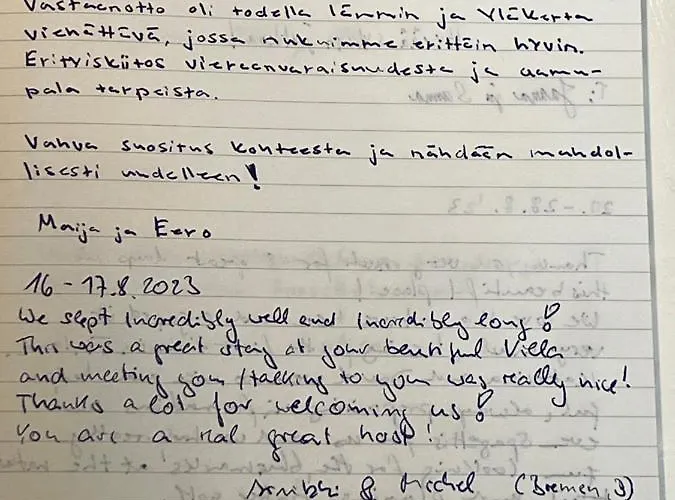 Vastaanotto oli todella lämmin ja Yläkerta
viehättävä, jossa nukuimme erittäin hyvin.
Erityiskiitos vieraanvaraisuudesta ja aamu-
pala tarpeista.
Vahva suositus kohteesta ja nähdään mahdol-
lisesti uudelleen!
Maija ja Eero
16 - 17.8.2023
We slept incredibly well and incredibly long!
This was a great stay at your beutiful Villa
and meeting you / talking to you was really nice!
Thanks a lot for welcoming us!
You are a real great host!
& Michel (Bremen, D)